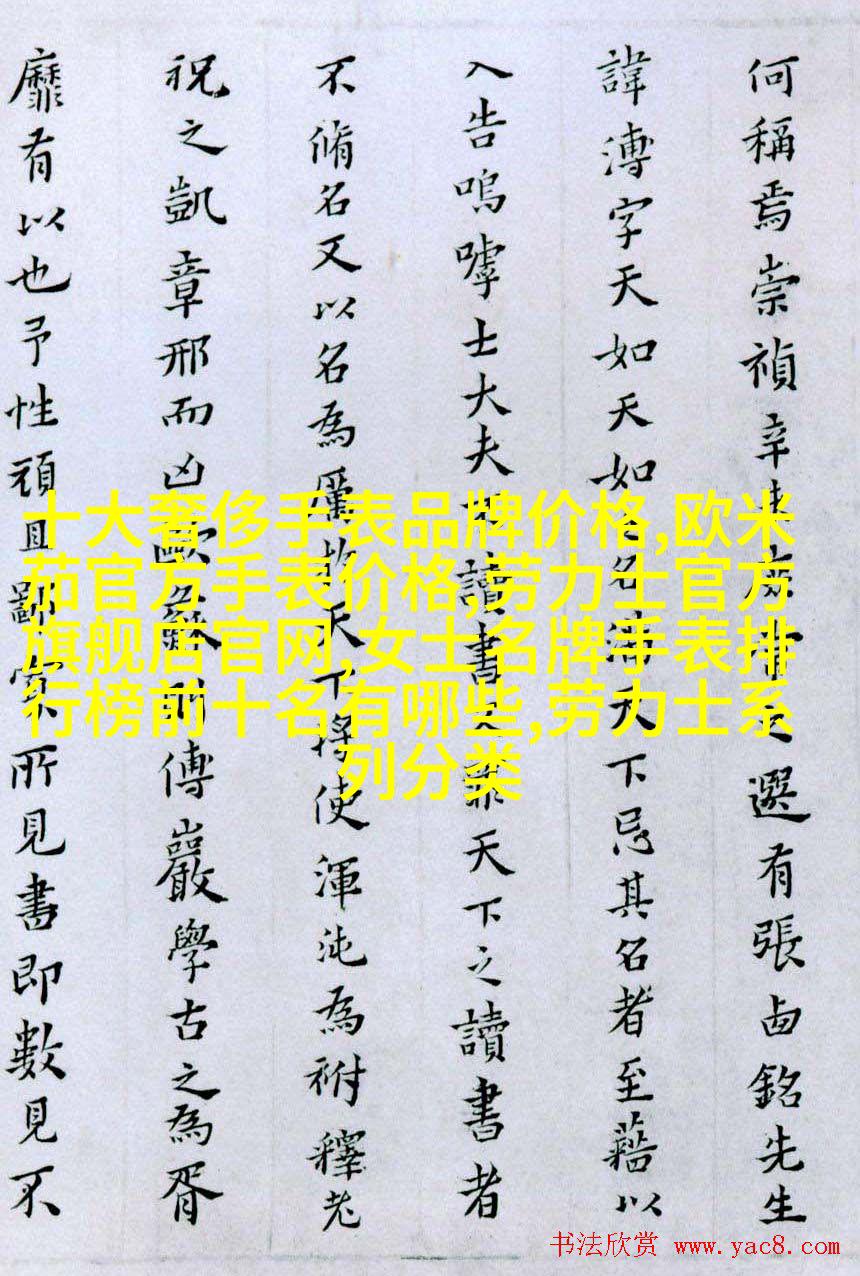 何稱焉崇禎辛未庶常之選有張鹵銘先生
諱溥字天如天如名滿天下忌其名者至藉以
入告嗚嘑士大夫不讀書之罪天下之讀書者
不脩名又以名為厲故天下將使渾沌為祔釋老
祝之凱章邢而凶歐蘇所傳巖學古之為胥
靡有以也予性頑且鄙寔所見書即數見不
十大奢侈手表品牌价格,欧米
茄官方手表价格,劳力士官方
旗舰店官网,女士名牌手表排
行榜前十名有哪些,劳力士系
列分类
书法欣赏 www.yac8.com